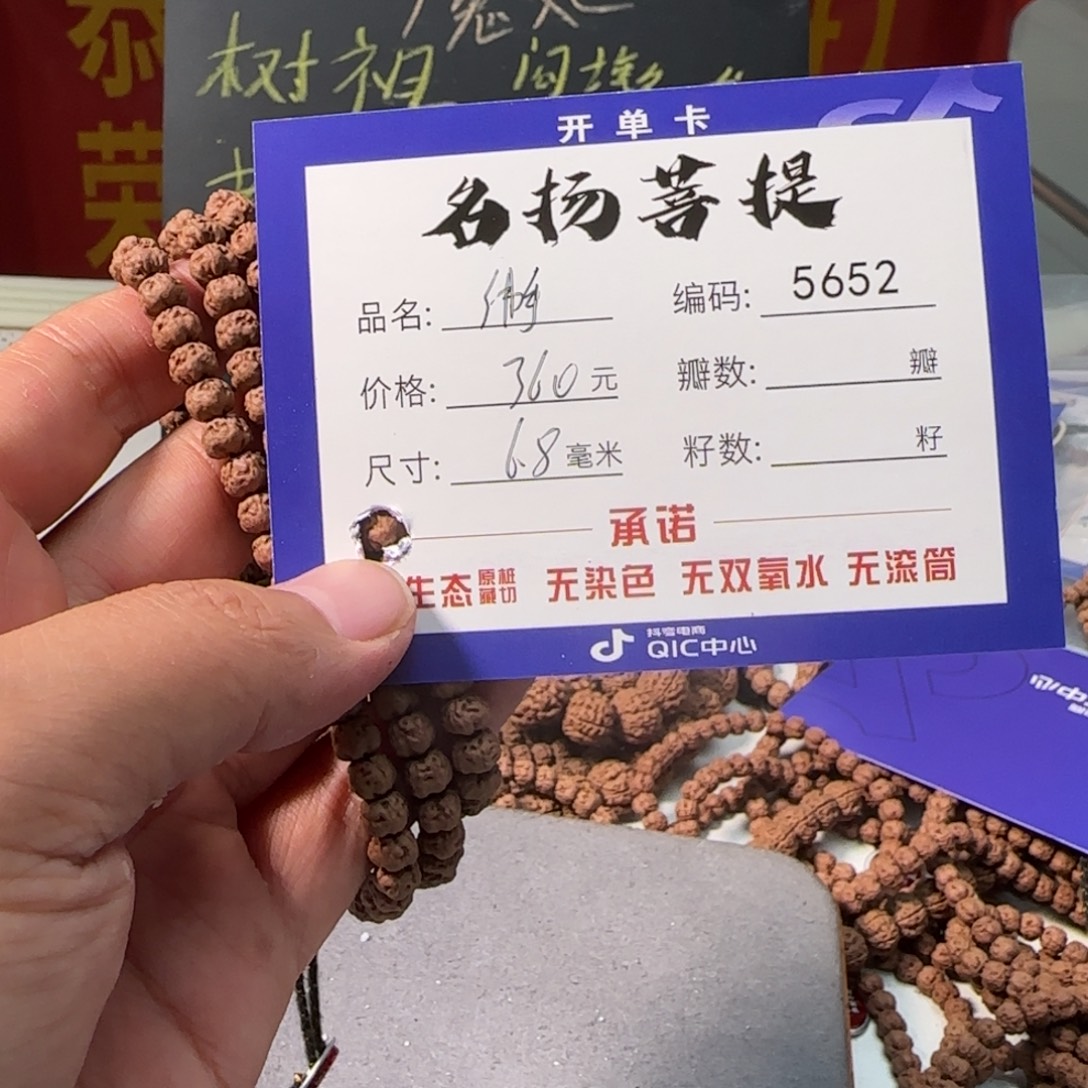 泰
荣
树祖
开单卡
名扬菩提
品名:
编码: 5652
价格: 360元
瓣数: 瓣
尺寸: 6.8毫米
籽数: 籽
承诺
生态 原桩藏切 无染色 无双氧水 无滚筒
抖音电商
QIC中心